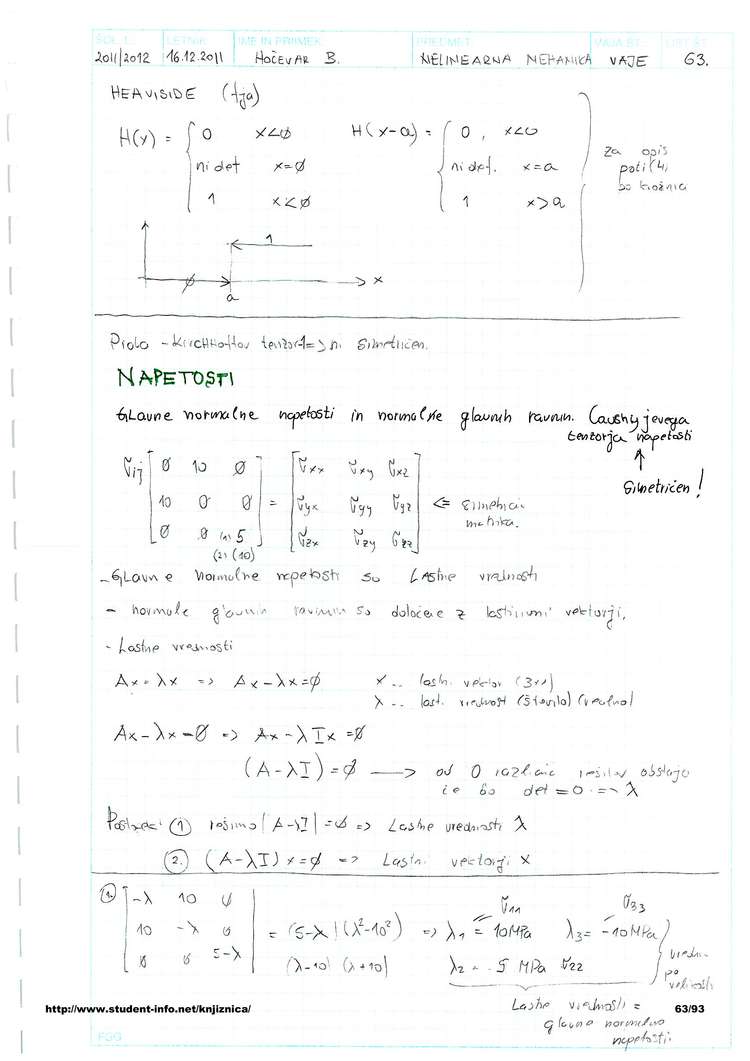 ŠOL. L. LETNIK IME IN PRIIMEK PREDMET VAJA ŠT. LIST ŠT.
2011/2012 16.12.2011 HOČEVAR B. NELINEARNA MEHANIKA VAJE 63.
HEAVISIDE (fja)
H(x) = { 0 x<∅ H(x-a) = { 0, x<0
ni def x=∅ ni def. x=a
1 x<∅ 1 x>a
za opis
poti (4)
po krožnici
1
∅ x
a
Piola - Kirchhoffov tenzor 1 => ni simetričen.
NAPETOSTI
Glavne normalne napetosti in normalne glavnih ravnin. Cauchyjevega
tenzorja napetosti
Simetričen!
σij [ ∅ 10 ∅ ] = [ σxx σxy σxz ]
[ 10 0 ∅ ] [ σyx σyy σyz ] <= simetrična
matrika.
[ ∅ ∅ (1) 5 ] [ σzx σzy σzz ]
(2) (10)
- Glavne normalne napetosti so Lastne vrednosti
- normale glavnih ravnin so določene z lastnimi vektorji.
- Lastne vrednosti
Ax = λx => Ax - λx = ∅ x .. lastn. vektor (3×1)
λ .. last. vrednost (število) (realno)
Ax - λx = ∅ => Ax - λIx = ∅
(A - λI) = ∅ —> od 0 različna rešitev obstaja
če bo det = 0 => λ
Postopek: 1 rešimo |A - λI| = ∅ => Lastne vrednosti λ
2. (A - λI) x = ∅ => Lastni vektorji x
1. [ -λ 10 0 ] σ11 σ33
[ 10 -λ 0 ] = (5-λ)(λ²-10²) => λ1 = 10MPa λ3 = -10MPa
[ 0 0 5-λ ] (λ-10) (λ+10) λ2 = 5 MPa σ22
vredn.
po
velikosti
Lastne vrednosti =
glavne normalne
napetosti
http://www.student-info.net/knjiznica/ 63/93
FGG